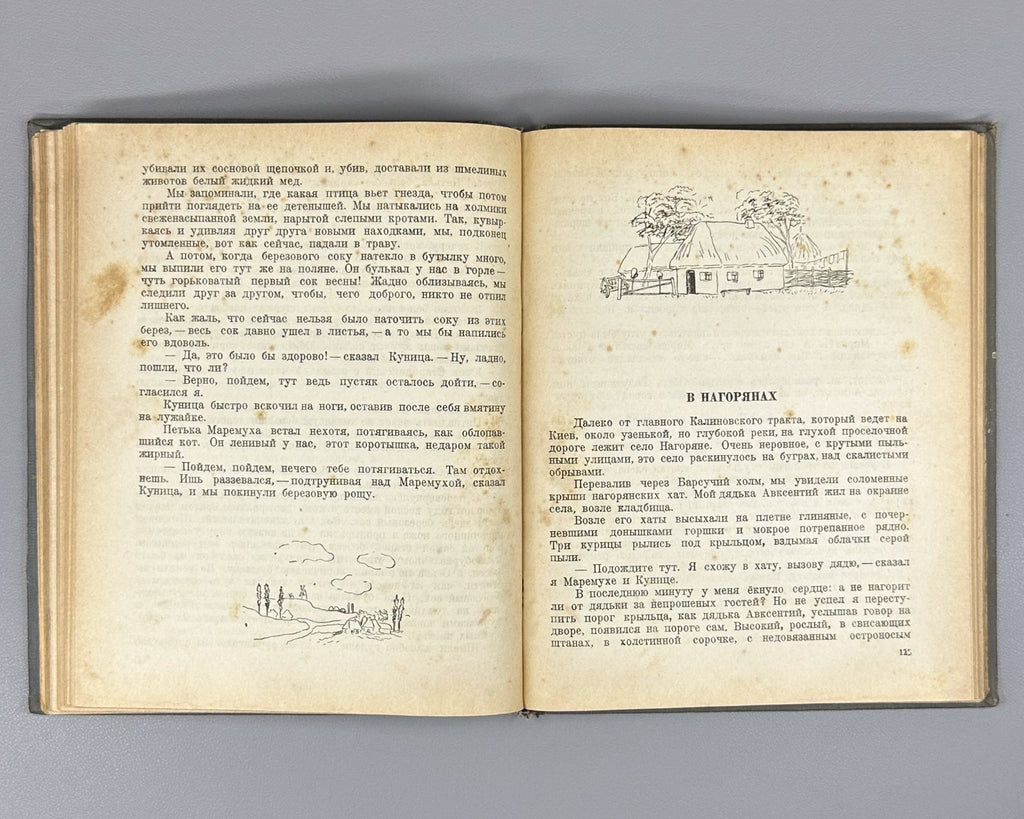 убивали их сосновой щепочкой и, убив, доставали из шмелиных
животов белый жидкий мед.
Мы запоминали, где какая птица вьет гнезда, чтобы потом
прийти поглядеть на ее детенышей. Мы натыкались на холмики
свеженасыпанной земли, нарытой слепыми кротами. Так, кувыр-
каясь и удивляя друг друга новыми находками, мы, подконец
утомленные, вот как сейчас, падали в траву.
А потом, когда березового соку натекло в бутылку много,
мы выпили его тут же на поляне. Он булькал у нас в горле —
чуть горьковатый первый сок весны! Жадно облизываясь, мы
следили друг за другом, чтобы, чего доброго, никто не отпил
лишнего.
Как жаль, что сейчас нельзя было наточить соку из этих
берез, — весь сок давно ушел в листья, — а то мы бы напились
его вдоволь.
— Да, это было бы здорово! — сказал Куница. — Ну, ладно,
пошли, что ли?
— Верно, пойдем, тут ведь пустяк осталось дойти, — со-
гласился я.
Куница быстро вскочил на ноги, оставив после себя вмятину
на лужайке.
Петька Маремуха встал нехотя, потягиваясь, как облопав-
шийся кот. Он ленивый у нас, этот коротышка, недаром такой
жирный.
— Пойдем, пойдем, нечего тебе потягиваться. Там отдох-
нешь. Ишь раззевался, — подтрунивая над Маремухой, сказал
Куница, и мы покинули березовую рощу.
В НАГОРЯНАХ
Далеко от главного Калиновского тракта, который ведет на
Киев, около узенькой, но глубокой реки, на глухой проселочной
дороге лежит село Нагоряне. Очень неровное, с крутыми пыль-
ными улицами, это село раскинулось на буграх, над скалистыми
обрывами.
Перевалив через Барсучий холм, мы увидели соломенные
крыши нагорянских хат. Мой дядька Авксентий жил на окраине
села, возле кладбища.
Возле его хаты высыхали на плетне глиняные, с почер-
невшими донышками горшки и мокрое потрепанное рядно.
Три курицы рылись под крыльцом, вздымая облачки серой
пыли.
— Подождите тут. Я схожу в хату, вызову дядю, — сказал
я Маремухе и Кунице.
В последнюю минуту у меня ёкнуло сердце: а не нагорит
ли от дядьки за непрошеных гостей? Но не успел я пересту-
пить порог крыльца, как дядька Авксентий, услышав говор на
дворе, появился на пороге сам. Высокий, рослый, в свисающих
штанах, в холстинной сорочке, с недовязанным остроносым